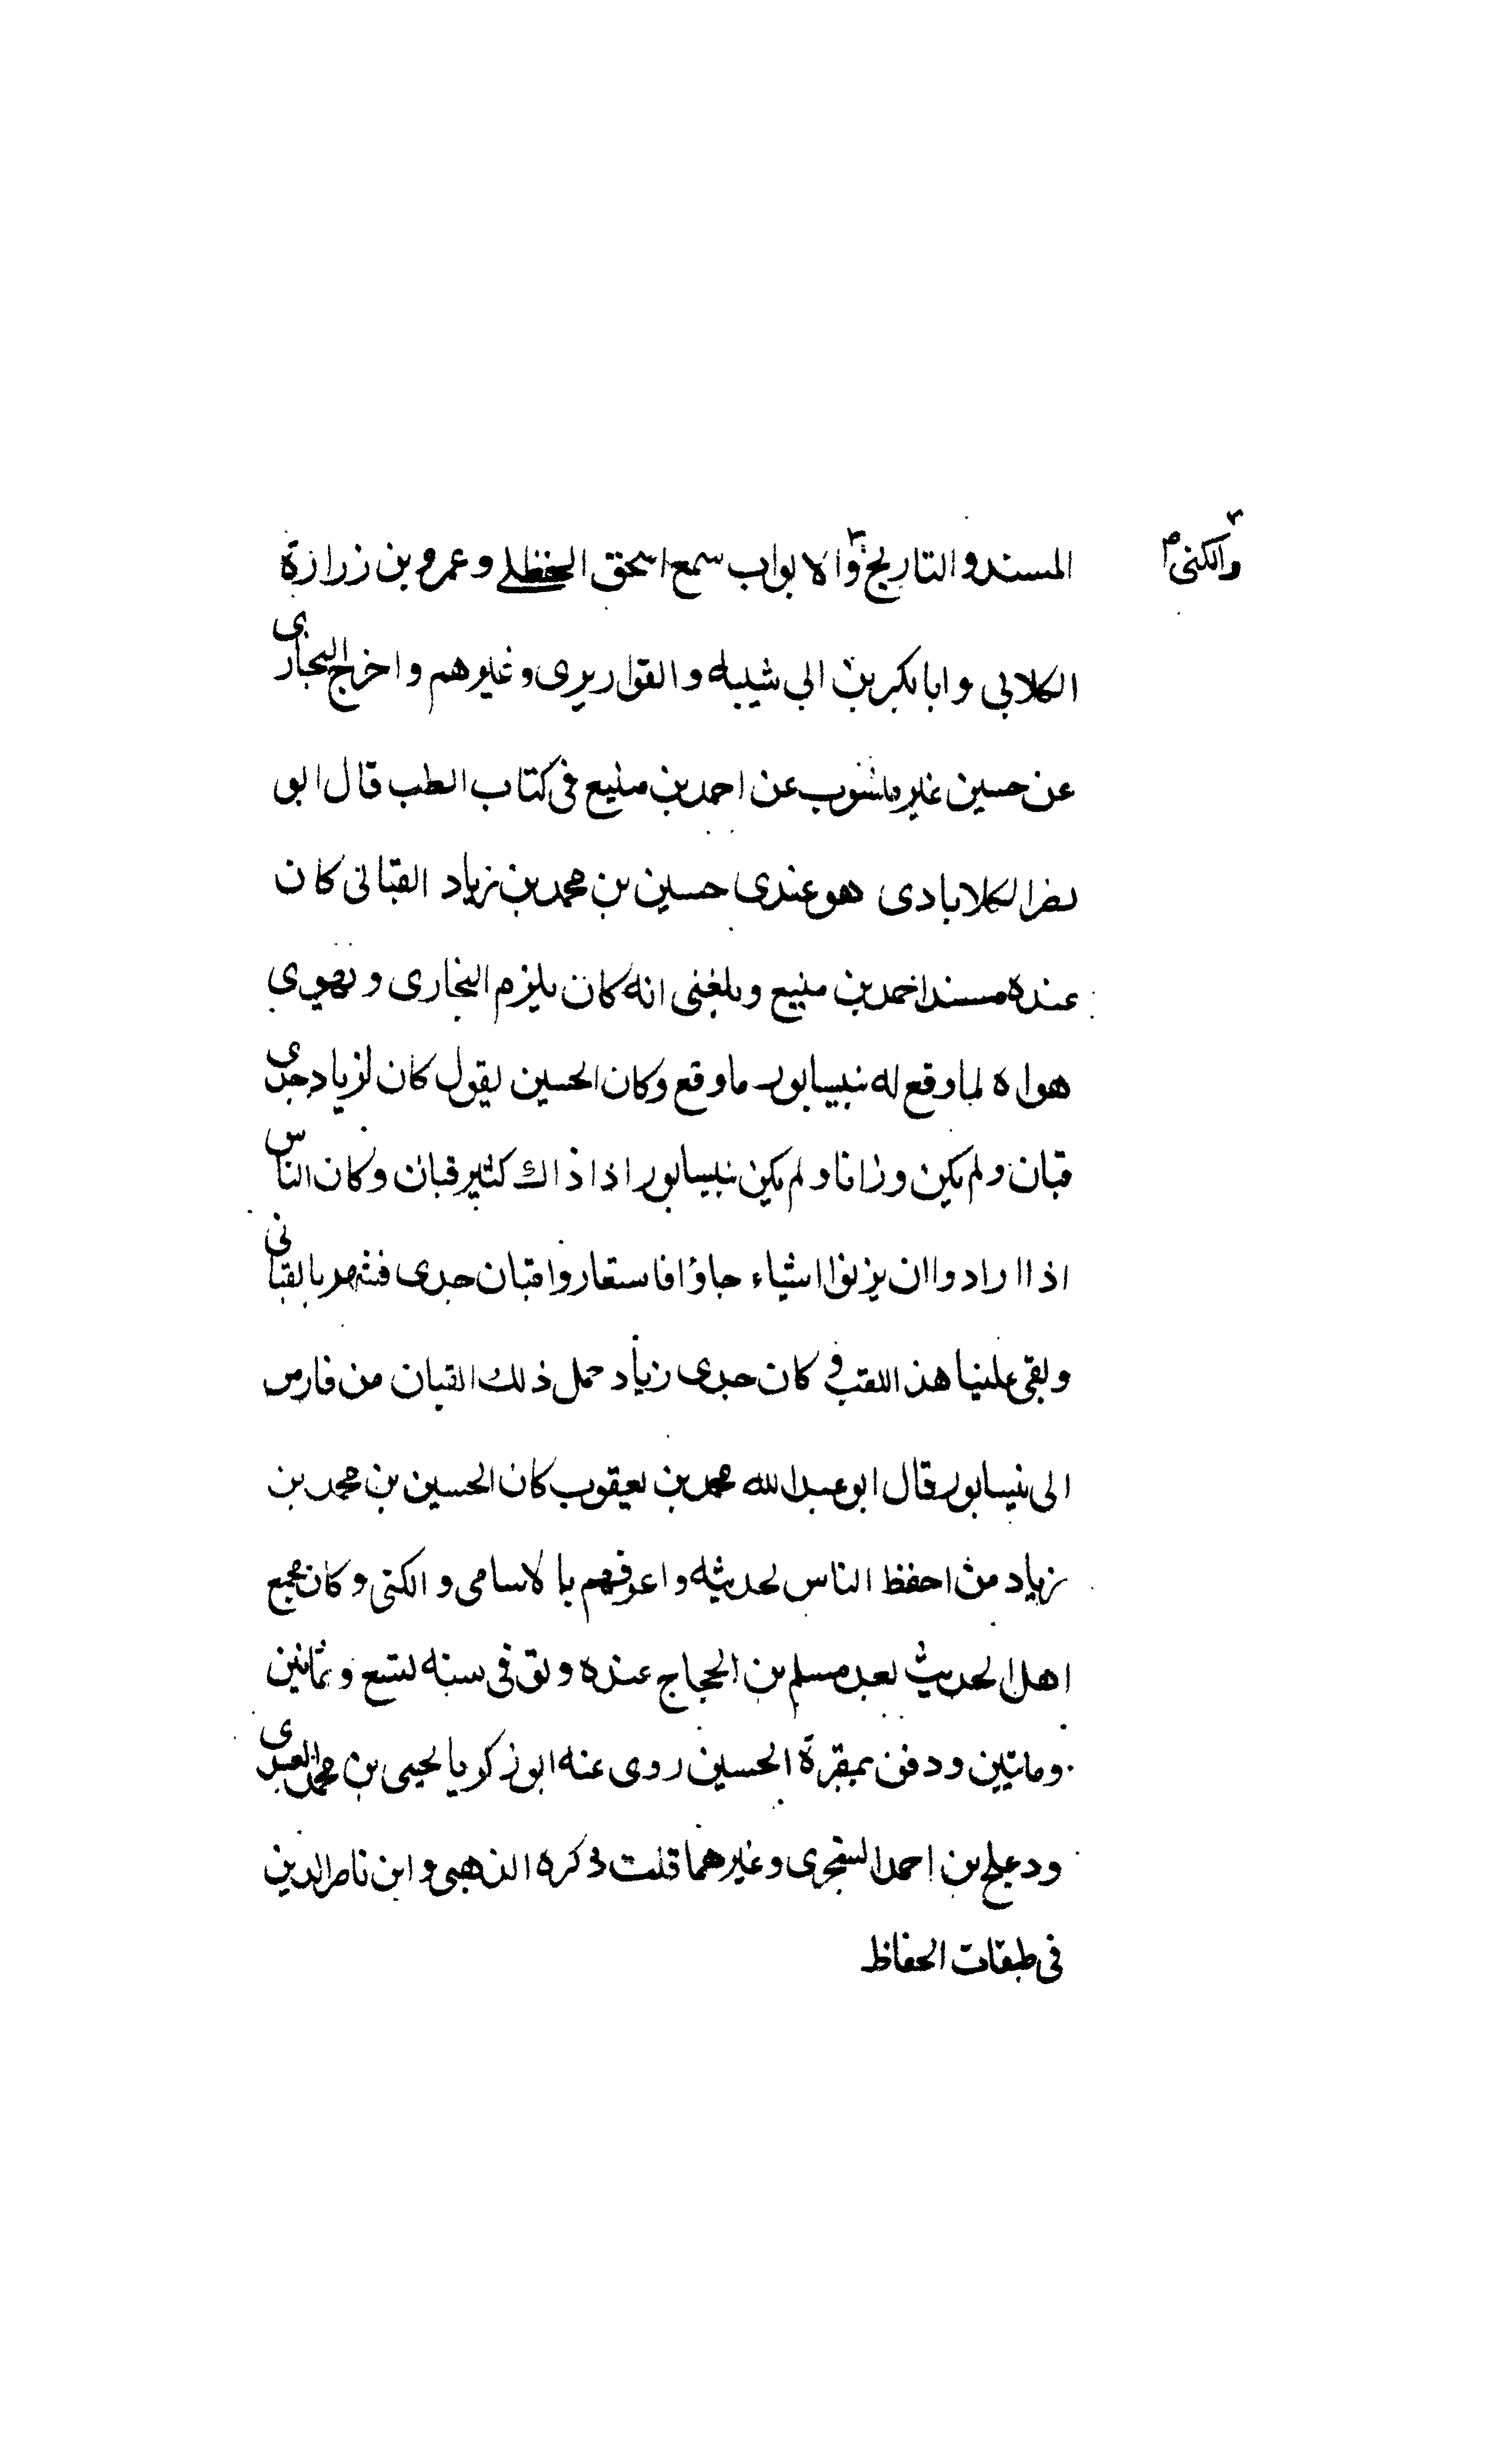 والكنى م
المسند و التاريخ والابواب سمع اسحق الحنظلي و عمرو بن زرارة
الكلابي و ابا بكر بن ابي شيبه و القواريرى و غيرهم و اخرج البخارى
عن حسين غير منسوب عن احمد بن منيع فى كتاب الطب قال ابو
نصر الكلاباذى هو عندى حسين بن محمد بن زياد القبانى كان
عنده مسند احمد بن منيع و بلغنى انه كان يلزم البخارى و يهوي
هواه لما وقع له بنيسابور ما وقع وكان الحسين يقول كان لزياد جدى
قبان و لم يكن وزانا و لم يكن بنيسابور اذا ذاك كثير قبان و كان الناس
اذا ارادوا ان يزنوا اشياء جاؤا فاستعاروا قبان جدى فشهر بالقبانى
و بقى علينا هذا اللقب كان جدى زياد حمل ذلك القبان من فارس
الى نيسابور قال ابو عبد الله محمد بن يعقوب كان الحسين بن محمد بن
زياد من احفظ الناس لحديثه و اعرفهم بالاسامى و الكنى و كان مجمع
اهل الحديث بعد مسلم بن الحجاج عنده و توفى سنه تسع و ثمانين
و مائتين و دفن بمقبرة الحسين روى عنه ابو زكريا يحيى بن محمد العنبرى
و دعلج بن احمد السجزى و غيرهما قلت ذكره الذهبى و ابن ناصر الدين
فى طبقات الحفاظ